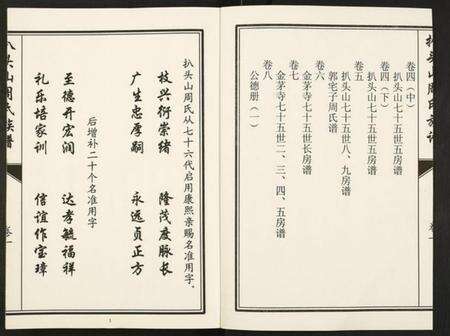 扒头山周氏族谱
卷四（中）
扒头山七十五世五房谱
卷四（下）
扒头山七十五世五房谱
卷五
扒头山七十五世八、九房谱
郭宅子周氏谱
卷六
金茅寺七十五世长房谱
卷七
金茅寺七十五世二、三、四、五房谱
卷八
公德册（一）
卷一
扒头山周氏从七十六代启用康熙亲赐名准用字。
枝兴衍崇绪 隆茂度脉长
广生忠厚嗣 永远贞正方
后增补二十个名准用字
至德开宏润 达孝毓福祥
礼乐培家训 信谊作宝璋
扒头山周氏族谱
卷一
1